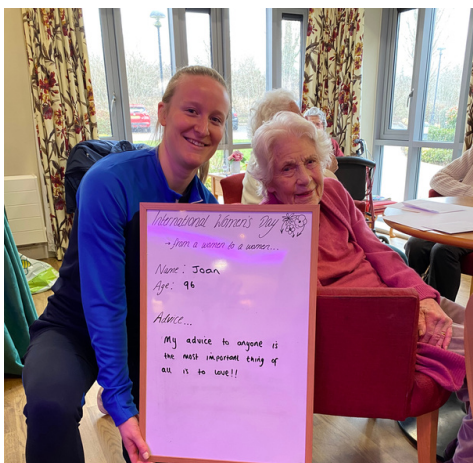 International Women's Day
→ from a women to a women...
Name: Joan
Age: 96
Advice...
My advice to anyone is
the most important thing of
all is to love!!